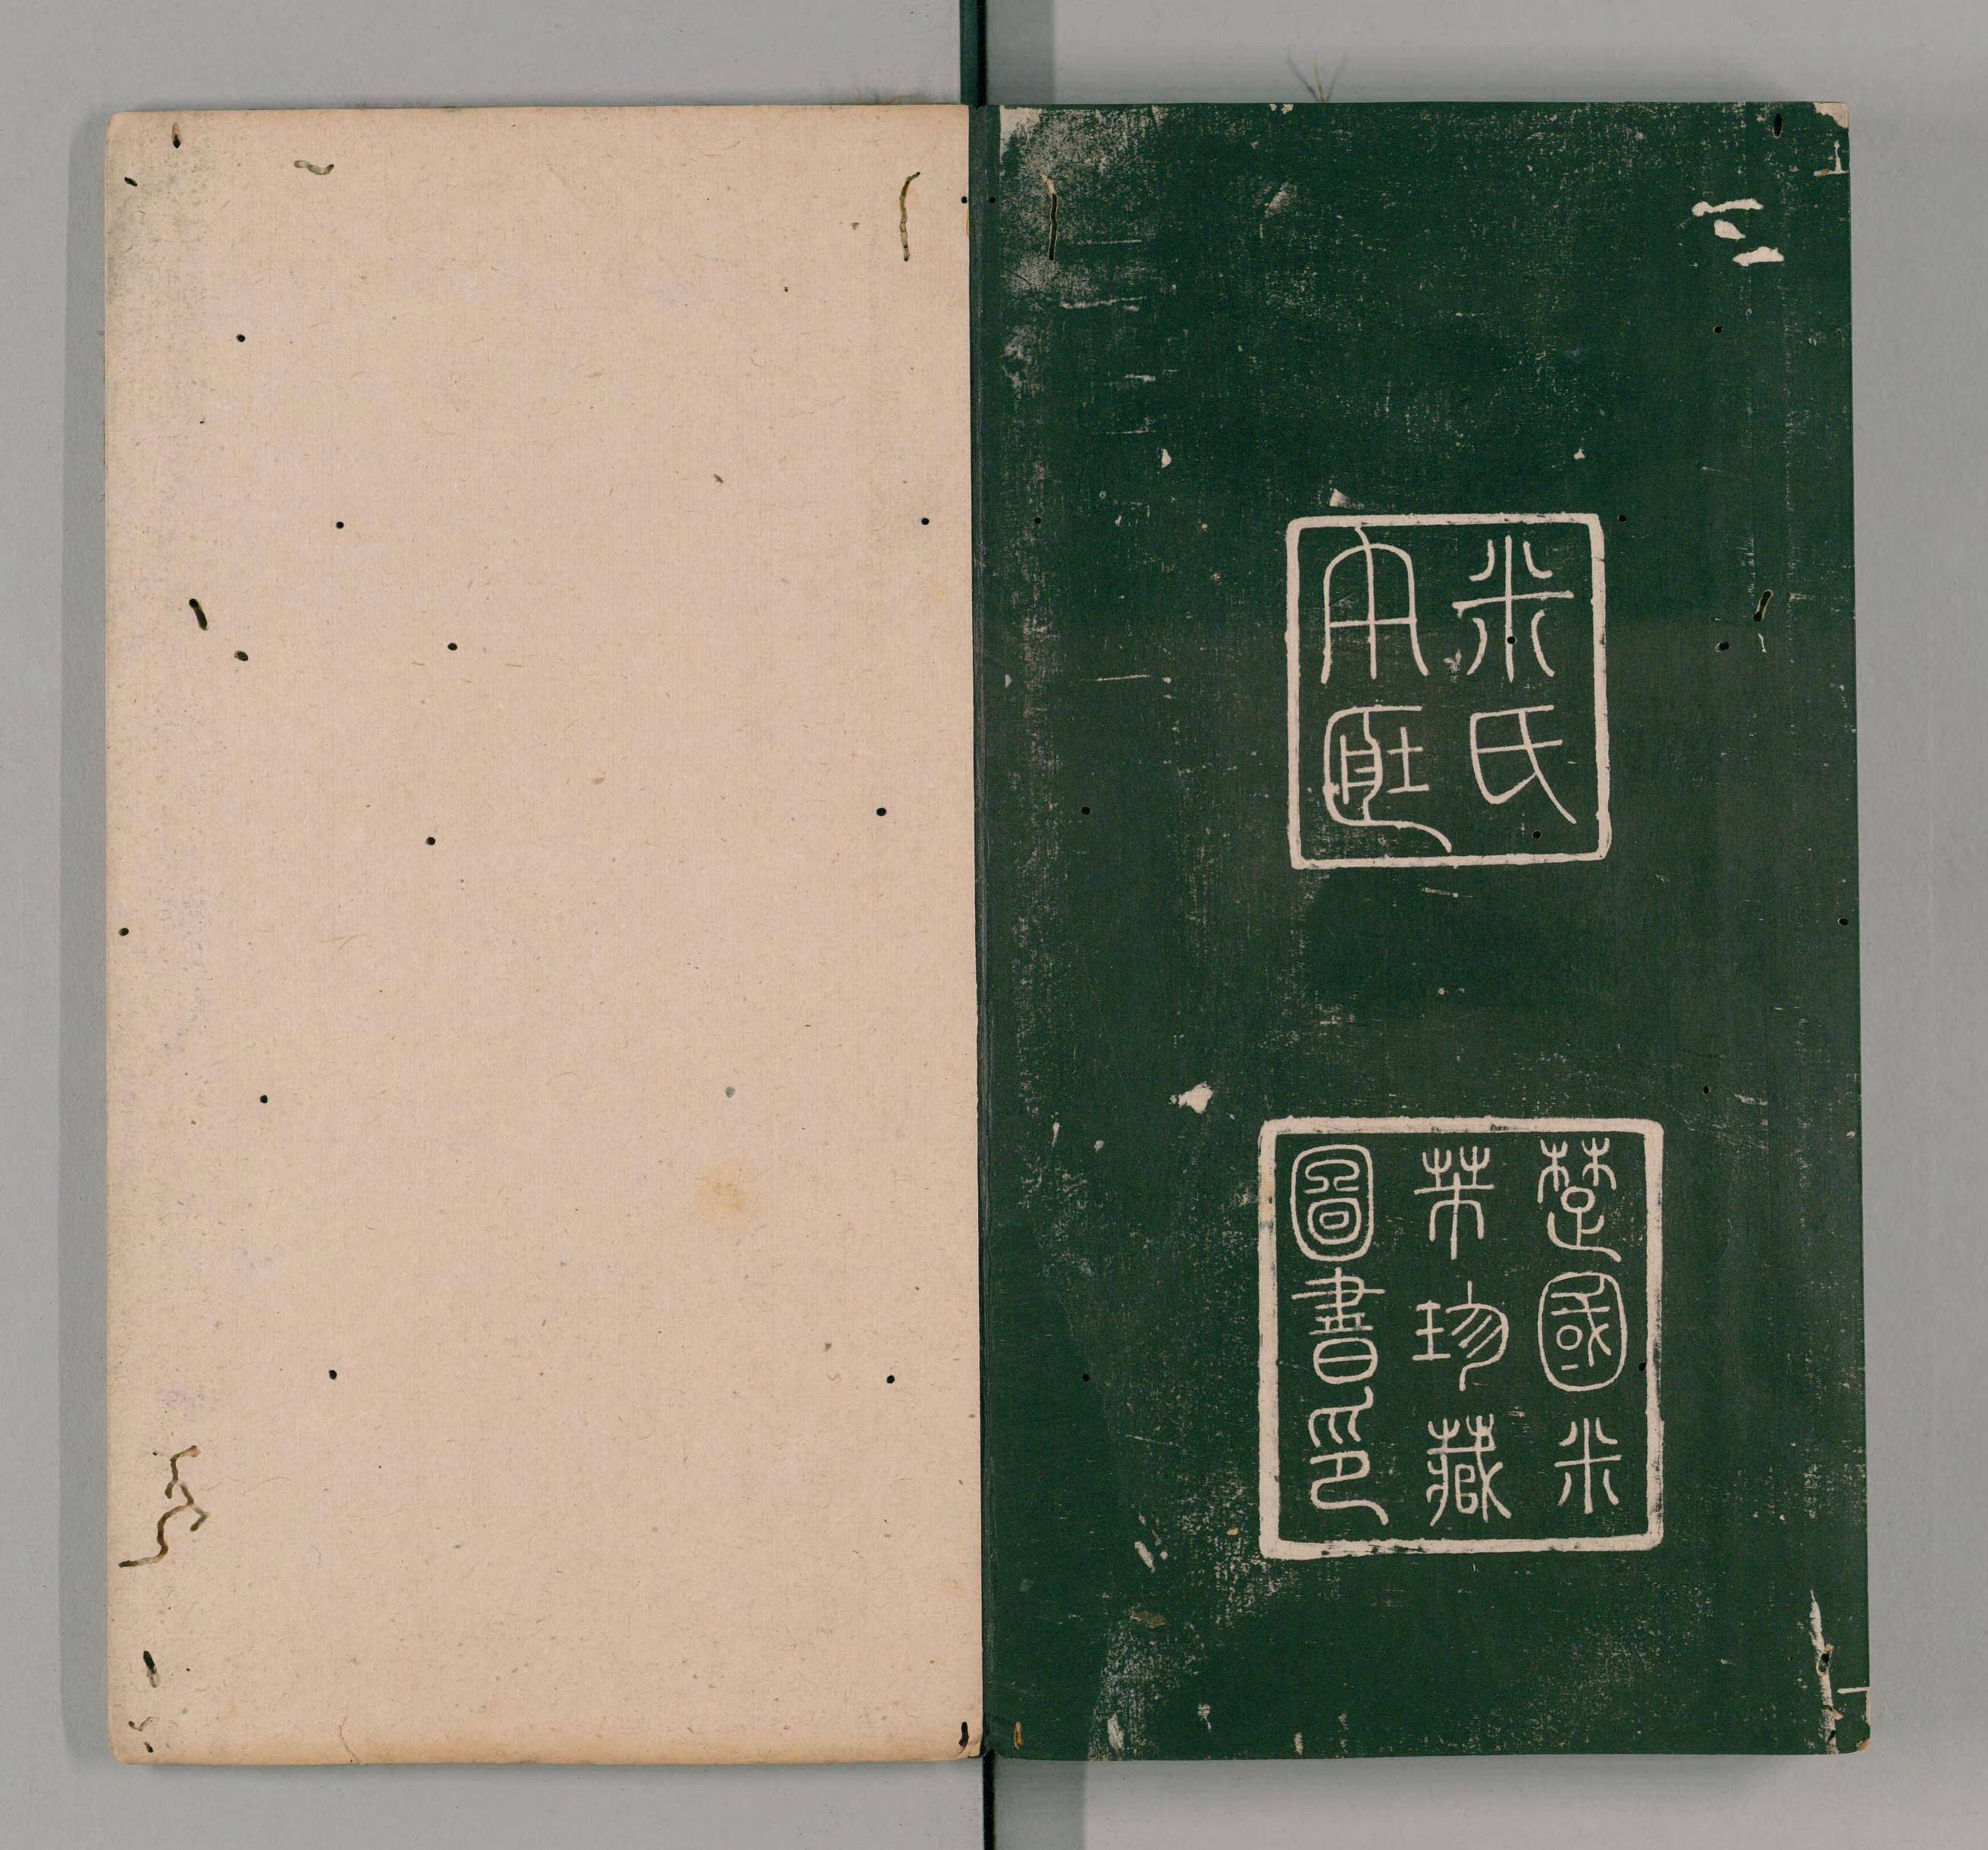 米氏
楚國米
芾珍藏
圖書印